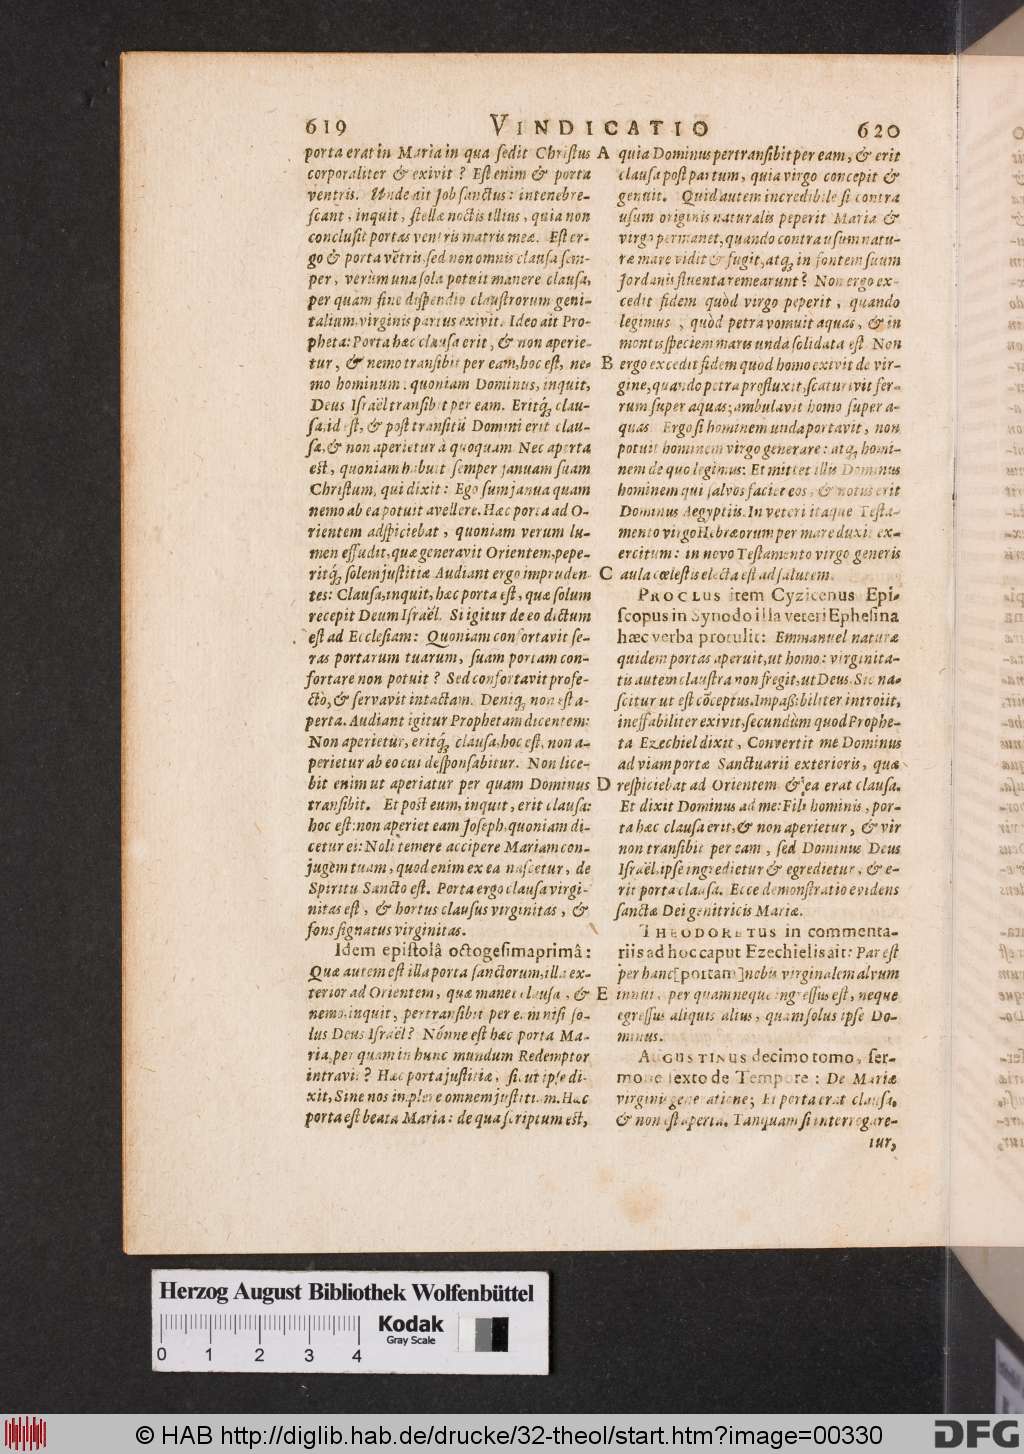 619 VINDICATIO 620
porta erat in Maria in qua sedit Christus
corporaliter & exivit? Est enim & porta
ventris. Unde ait Job sanctus: intenebre-
scant, inquit, stellæ noctis illius, quia non
conclusit portas ventris matris meæ. Est er-
go & porta vẽtris, sed non omnis clausa sem-
per, verùm una sola potuit manere clausa,
per quam sine dispendio claustrorum geni-
talium, virginis partus exivit. Ideo ait Pro-
pheta: Porta hæc clausa erit, & non aperie-
tur, & nemo transibit per eam, hoc est, ne-
mo hominum: quoniam Dominus, inquit,
Deus Israël transibit per eam. Eritq́ clau-
sa, id est, & post transitũ Domini erit clau-
sa, & non aperietur à quoquam. Nec aperta
est, quoniam habuit semper januam suam
Christum, qui dixit: Ego sum janua quam
nemo ab ea potuit avellere. Hæc porta ad O-
rientem adspiciebat, quoniam verum lu-
men effudit, quæ generavit Orientem, pepe-
ritq́ solem justitiæ Audiant ergo impruden-
tes: Clausa, inquit, hæc porta est, quæ solum
recepit Deum Israël. Si igitur de eo dictum
est ad Ecclesiam: Quoniam confortavit se-
ras portarum tuarum, suam portam con-
fortare non potuit? Sed confortavit profe-
ctò, & servavit intactam. Deniq́ non est a-
perta. Audiant igitur Prophetam dicentem:
Non aperietur, eritq́ clausa, hoc est, non a-
perietur ab eo cui desponsabitur. Non lice-
bit enim ut aperiatur per quam Dominus
transibit. Et post eum, inquit, erit clausa:
hoc est: non aperiet eam Joseph, quoniam di-
cetur ei: Noli temere accipere Mariam con-
jugem tuam, quod enim ex ea nascetur, de
Spiritu Sancto est. Porta ergo clausa virgi-
nitas est, & hortus clausus virginitas, &
fons signatus virginitas.
Idem epistolâ octogesimaprimâ:
Quæ autem est illa porta sanctorum, illa ex-
terior ad Orientem, quæ manet clausa, &
nemo, inquit, pertransibit per eam nisi so-
lus Deus Israël? Nónne est hæc porta Ma-
ria, per quam in hunc mundum Redemptor
intravit? Hæc porta justitiæ, sicut ipse di-
xit, Sine nos implere omnem justitiam. Hæc
porta est beata Maria: de qua scriptum est,
A
B
C
D
E
quia Dominus pertransibit per eam, & erit
clausa post partum, quia virgo concepit &
genuit. Quid autem incredibile si contra
usum originis naturalis peperit Maria &
virgo permanet, quando contra usum natu-
ræ mare vidit & fugit, atq́ in fontem suum
Jordanis fluenta remearunt? Non ergo ex-
cedit fidem quòd virgo peperit, quando
legimus, quòd petra vomuit aquas, & in
montis speciem maris unda solidata est. Non
ergo excedit fidem quod homo exivit de vir-
gine, quando petra profluxit, scaturivit fer-
rum super aquas, ambulavit homo super a-
quas. Ergo si hominem unda portavit, non
potuit hominem virgo generare: atq́ homi-
nem de quo legimus: Et mittet illis Dominus
hominem qui salvos faciet eos, & notus erit
Dominus Aegyptiis. In veteri itaque Testa-
mento virgo Hebræorum per mare duxit ex-
ercitum: in novo Testamento virgo generis
aula cœlestis electa est ad salutem.
PROCLUS item Cyzicenus Epi-
scopus in Synodo illa veteri Ephesina
hæc verba protulit: Emmanuel naturæ
quidem portas aperuit, ut homo: virginita-
tis autem claustra non fregit, ut Deus. Sic na-
scitur ut est cõceptus. Impassibiliter introiit,
ineffabiliter exivit, secundùm quod Prophe-
ta Ezechiel dixit, Convertit me Dominus
ad viam portæ Sanctuarii exterioris, quæ
respiciebat ad Orientem & ea erat clausa.
Et dixit Dominus ad me: Fili hominis, por-
ta hæc clausa erit, & non aperietur, & vir
non transibit per eam, sed Dominus Deus
Israël, ipse ingredietur & egredietur, & e-
rit porta clausa. Ecce demonstratio evidens
sanctæ Dei genitricis Mariæ.
THEODORETUS in commenta-
riis ad hoc caput Ezechielis ait: Par est
per hanc [portam] nobis virginalem alvum
innui, per quam neque ingressus est, neque
egressus aliquis alius, quam solus ipse Do-
minus.
AUGUSTINUS decimo tomo, ser-
mone sexto de Tempore: De Mariæ
virginis generatione; Et porta erat clausa,
& non est aperta. Tanquam si interrogare-
tur,
Herzog August Bibliothek Wolfenbüttel
Kodak
Gray Scale
0 1 2 3 4
© HAB http://diglib.hab.de/drucke/32-theol/start.htm?image=00330
DFG